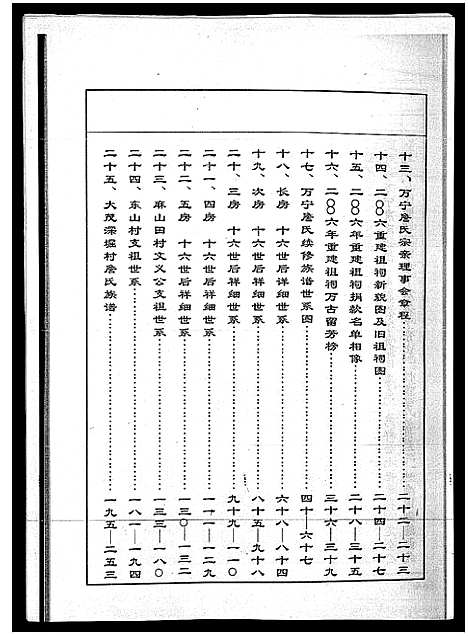 十三、万宁詹氏宗亲理事会章程……………二十二—二十三
十四、二〇〇六重建祖祠新貌图及旧祖祠图……………二十四—二十七
十五、二〇〇六年重建祖祠捐款名单相像……………二十八—三十五
十六、二〇〇六年重建祖祠万古留芳榜……………三十六—三十九
十七、万宁詹氏续修族谱世系图……………四十—六十七
十八、长房 十六世后详细世系……………六十八—八十四
十九、次房 十六世后详细世系……………八十五—九十八
二十、三房 十六世后详细世系……………九十九—一一〇
二十一、四房 十六世后祥细世系……………一一一—一二九
二十二、五房 十六世后祥细世系……………一三〇—一三二
二十三、麻山田村文义公支祖世系……………一三三—一八〇
二十四、东山村支祖世系……………一八一—一九四
二十五、大茂深堀村詹氏族谱……………一九五—二五三